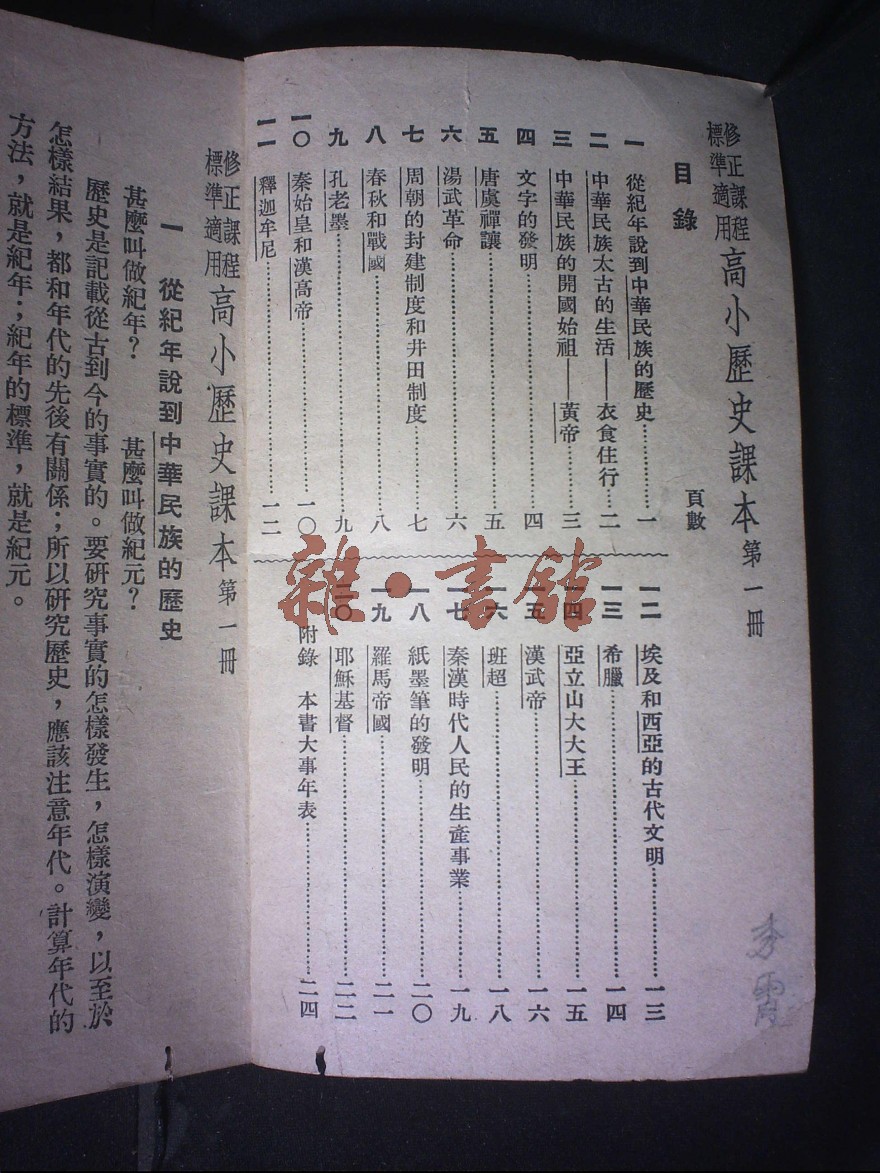 修正課程
標準適用
高小歷史課本 第一冊
目錄
頁數
一 從紀年說到中華民族的歷史……一
二 中華民族太古的生活——衣食住行……二
三 中華民族的開國始祖——黃帝……三
四 文字的發明……四
五 唐虞禪讓……五
六 湯武革命……六
七 周朝的封建制度和井田制度……七
八 春秋和戰國……八
九 孔老墨……九
一〇 秦始皇和漢高帝……一〇
一一 釋迦牟尼……一二
一二 埃及和西亞的古代文明……一三
一三 希臘……一四
一四 亞立山大大王……一五
一五 漢武帝……一六
一六 班超……一八
一七 秦漢時代人民的生產事業……一九
一八 紙墨筆的發明……二〇
一九 羅馬帝國……二一
二〇 耶穌基督……二二
附錄 本書大事年表……二四
雜·書館
李霄
修正課程
標準適用
高小歷史課本 第一冊
一 從紀年說到中華民族的歷史
甚麼叫做紀年? 甚麼叫做紀元?
歷史是記載從古到今的事實的。要研究事實的怎樣發生,怎樣演變,以至於
怎樣結果,都和年代的先後有關係;所以研究歷史,應該注意年代。計算年代的
方法,就是紀年;紀年的標準,就是紀元。